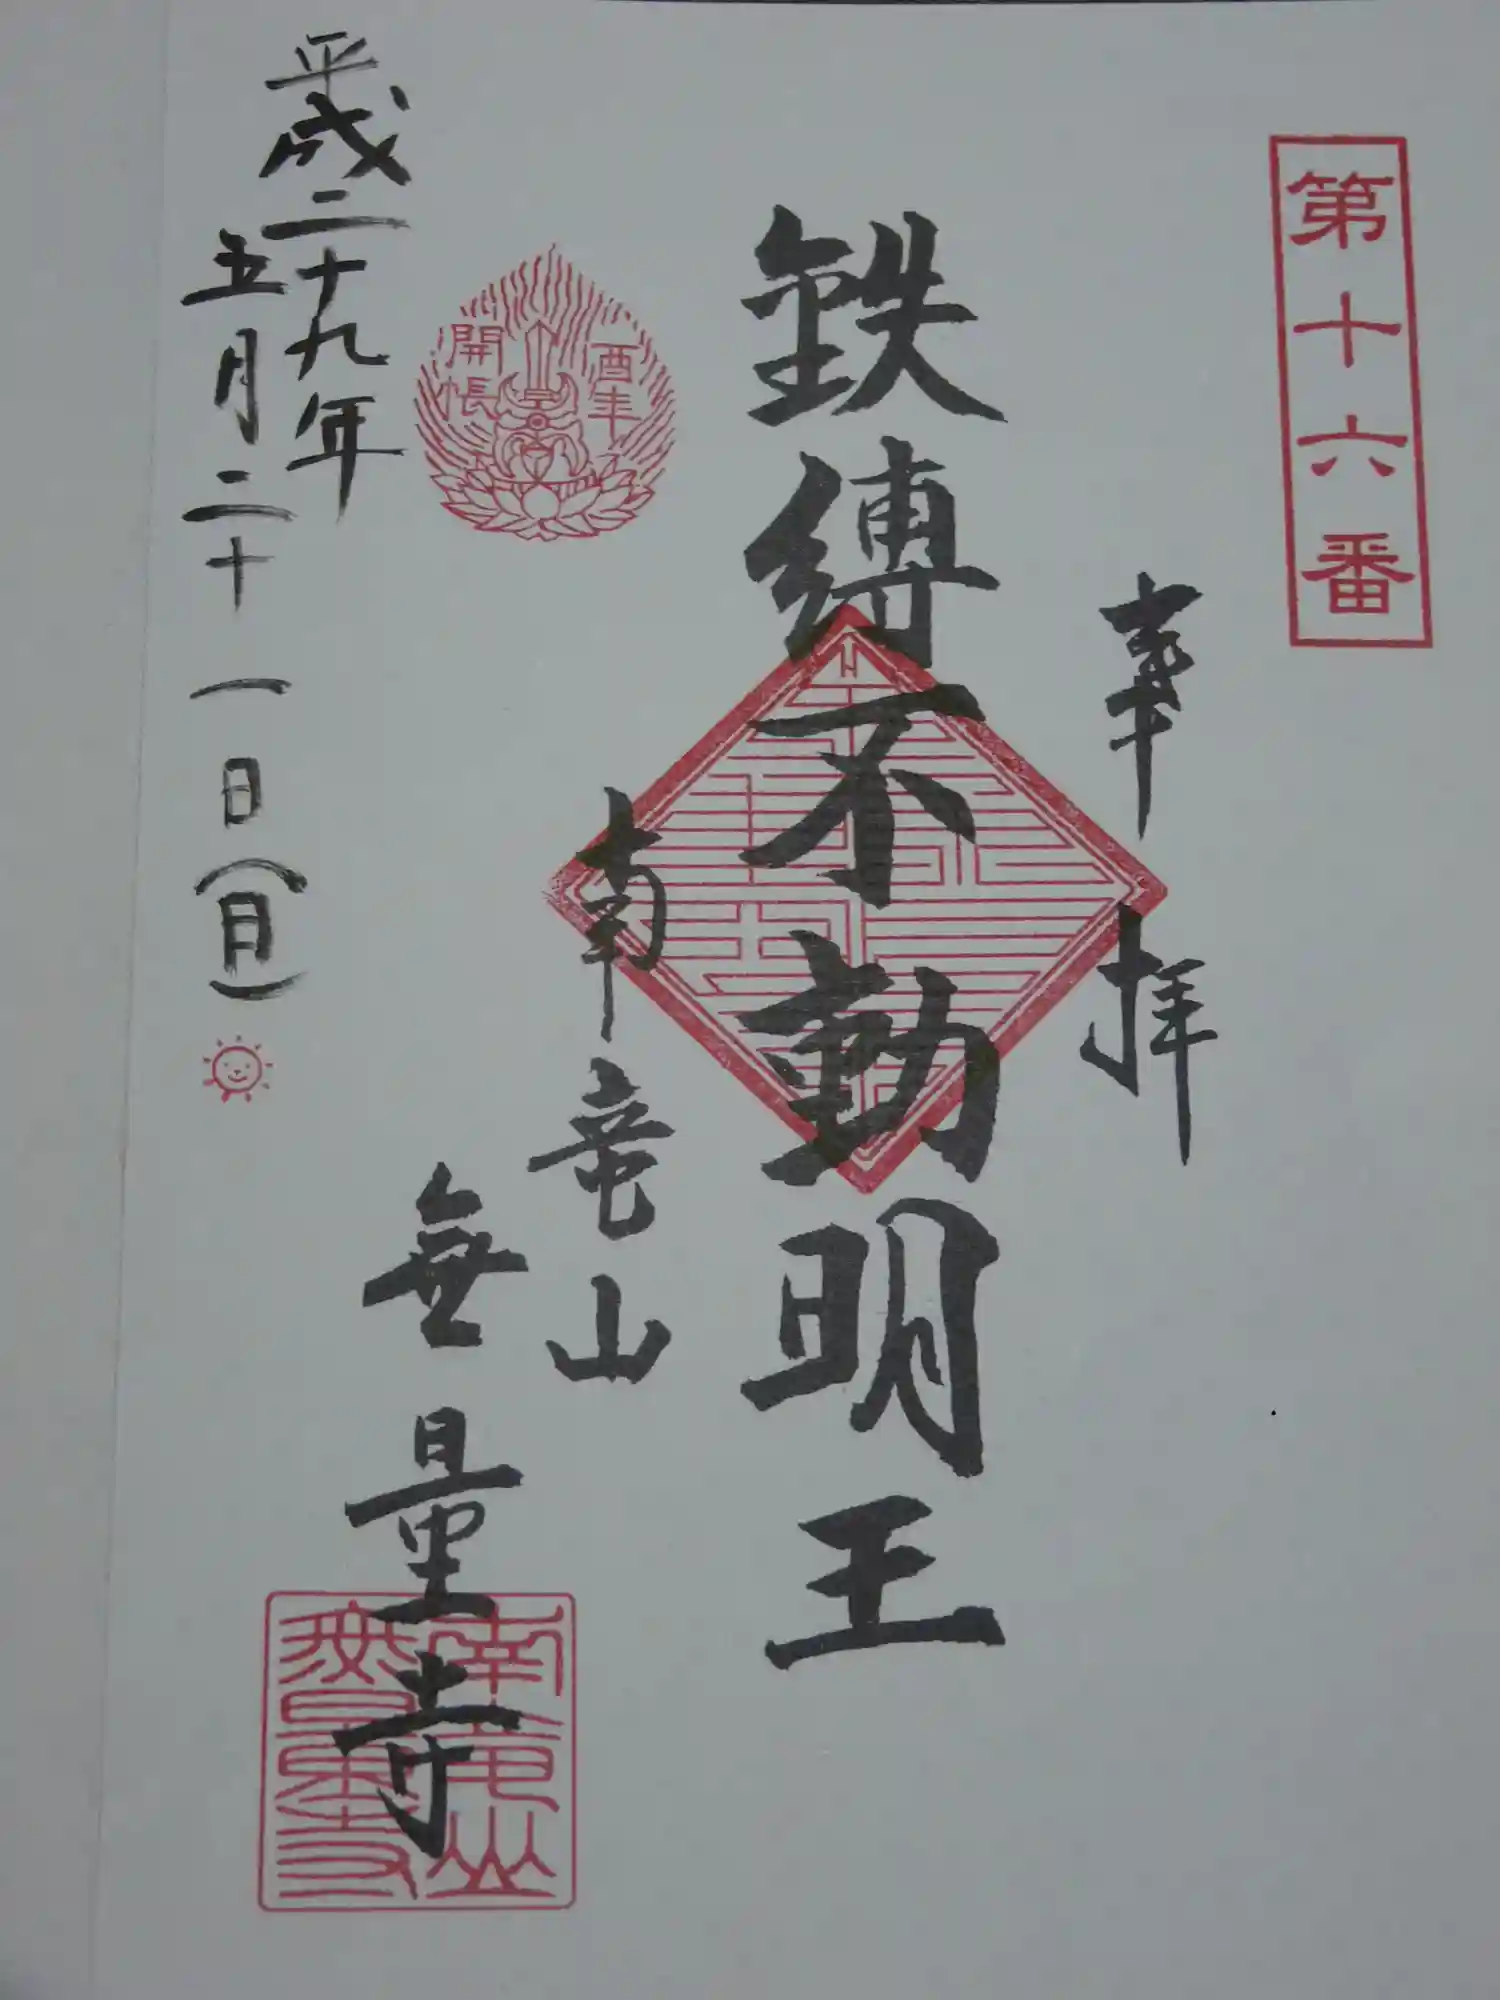 第十六番
奉拝
鉄縛不動明王
南竜山
無量寺
酉年
開帳
平成二十九年
五月二十一日(日)
南竜山
無量寺